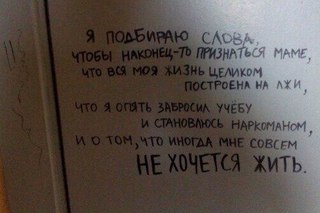 Я ПОДБИРАЮ СЛОВА,
ЧТОБЫ НАКОНЕЦ-ТО ПРИЗНАТЬСЯ МАМЕ,
ЧТО ВСЯ МОЯ ЖИЗНЬ ЦЕЛИКОМ
ПОСТРОЕНА НА ЛЖИ,
ЧТО Я ОПЯТЬ ЗАБРОСИЛ УЧЁБУ
И СТАНОВЛЮСЬ НАРКОМАНОМ,
И О ТОМ, ЧТО ИНОГДА МНЕ СОВСЕМ
НЕ ХОЧЕТСЯ ЖИТЬ.